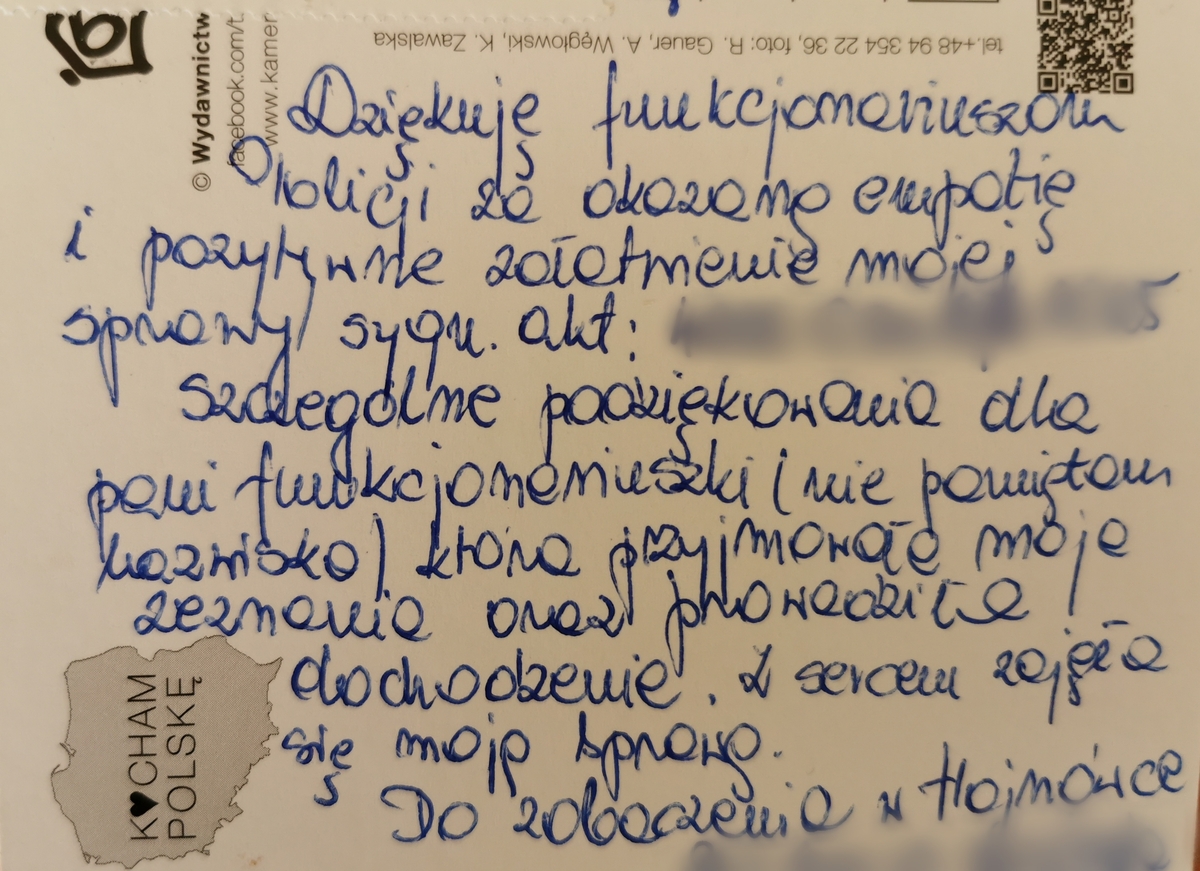 tel.+48 94 354 22 36, foto: R. Gauer, A. Węgłowski, K. Zawalska
© Wydawnictw
facebook.com/t
www.kamer
Dziękuję funkcjonariuszom
Policji za okazaną empatię
i pozytywne załatwienie mojej
sprawy sygn. akt:
Szczególne podziękowania dla
pani funkcjonariuszki (nie pamiętam
nazwiska) która przyjmowała moje
zeznania oraz prowadziła
dochodzenie. Z sercem zajęła
się moją sprawą.
Do zobaczenia w Hajnówce
K♥CHAM
POLSKĘ